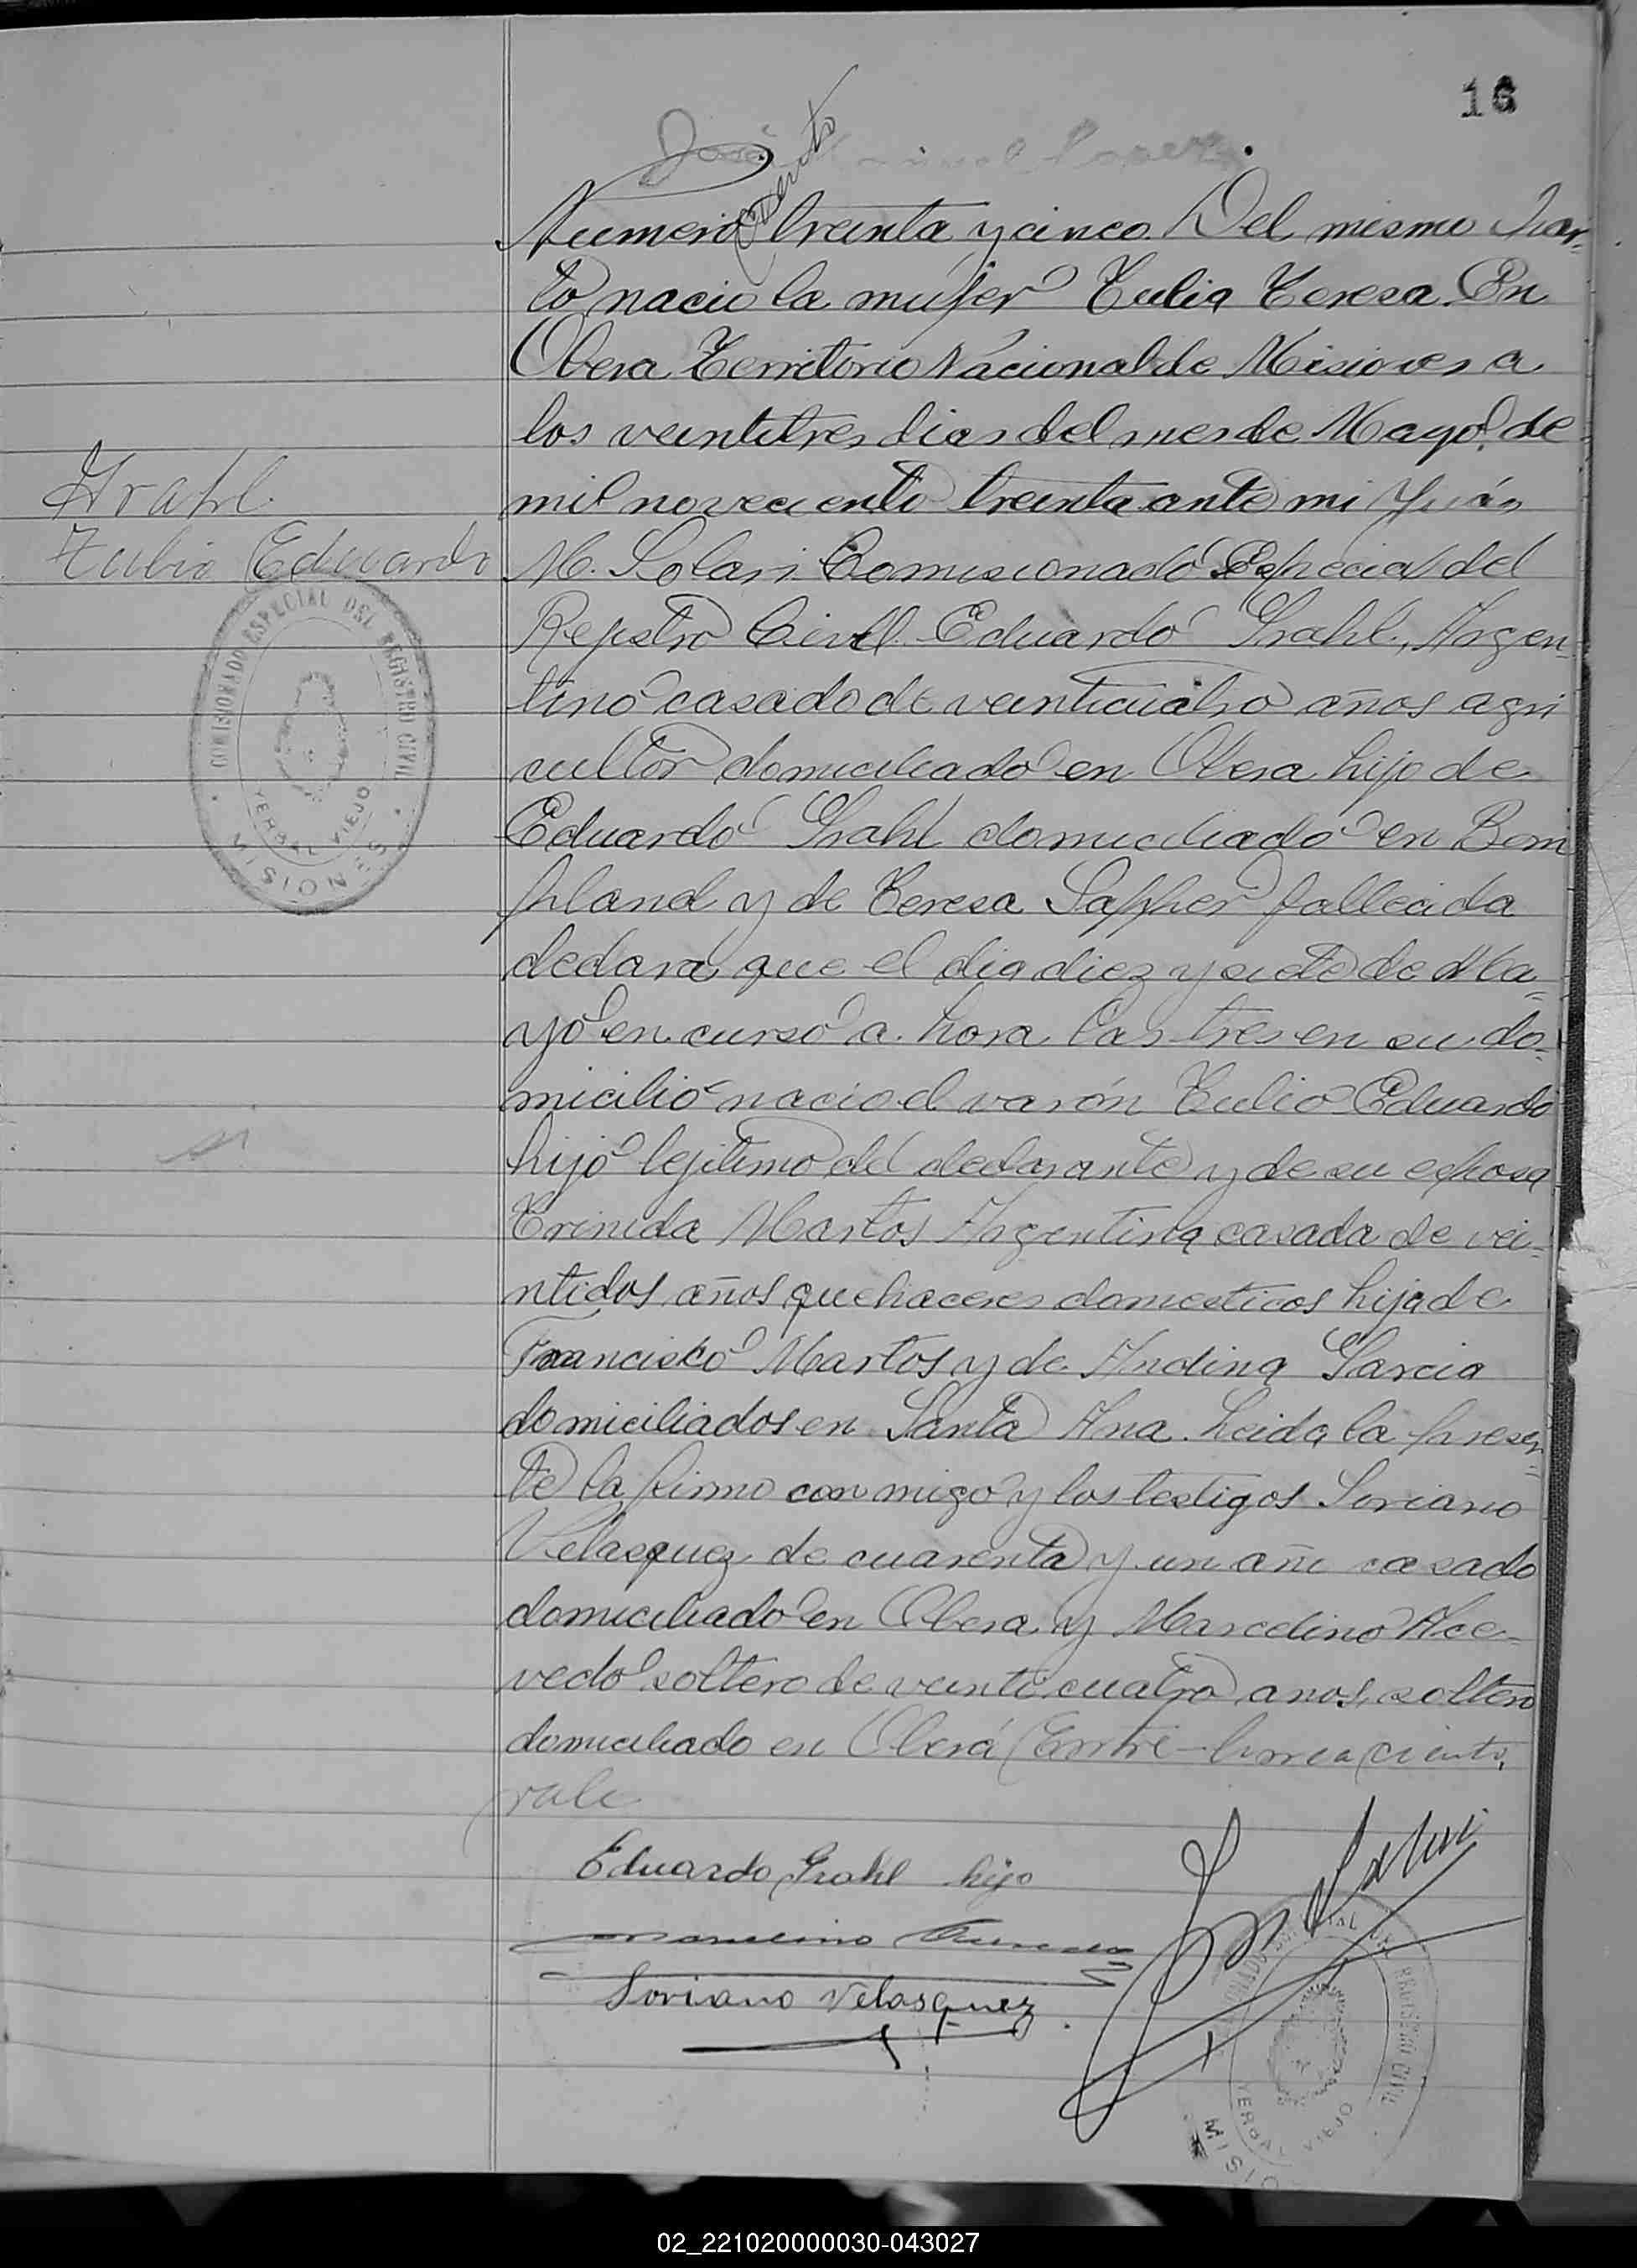 16
José
ciento
Numero treinta y cinco. Del mismo Par-
to nacio la mujer Tulia Teresa. En
Obera Territorio Nacional de Misiones a
los veintitres dias del mes de Mayo de
mil noveciento treinta ante mi Juán
M. Solari Comisionado Especial del
Rejistro Civil Eduardo Grahl, Argen-
tino casado de veinticuatro años agri
cultor domiciliado en Obera hijo de
Eduardo Grahl domiciliado en Bom
pland y de Teresa Sapher fallecida
declara que el dia diez y siete de Ma-
yo en curso a hora las tres en su do-
micilio nacio el varón Tulio Eduardo
hijo lejitimo del declarante y de su esposa
Trinida Martos Argentina casada de vei-
ntidos años quehaceres domesticos hija de
Francisco Martos y de Andina Garcia
domiciliados en Santa Ana. Leida la presen-
te la firmo con migo y los testigos Soriano
Velasquez de cuarenta y un año casado
domiciliado en Obera y Marcelino Ace-
vedo soltero de veinte cuatro anos, soltero
domiciliado en Oberá (Entre-linea ciento,
vale
Grahl
Tulio Eduardo
COMISIONADO ESPECIAL DEL REGISTRO CIVIL
YERBAL VIEJO
MISIONES
Eduardo Grahl hijo
Marcelino Acevedo
Soriano Velasquez
J M Solari
REGISTRO CIVIL
YERBAL VIEJO
02_221020000030-043027